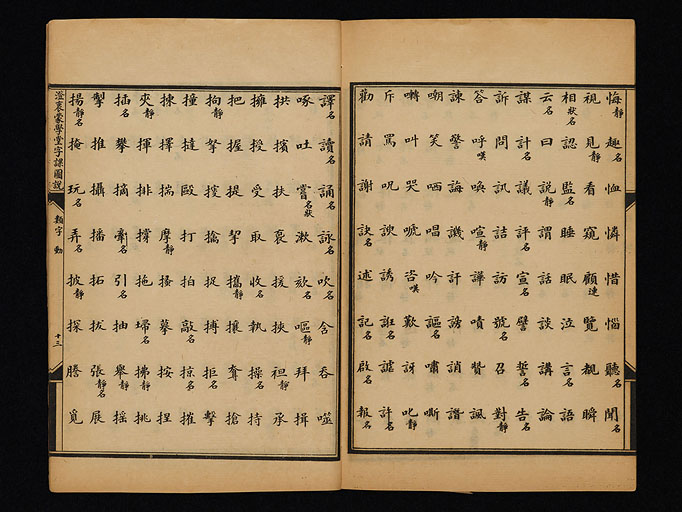 悔靜趣名恤憐惜惱聽名聞名
視見靜看窺顧連覽覩瞬
相狀名認監名睡眠泣言名語
云名曰說靜謂話談講論
謀計名議評名宣名譬誓名告名
訴問訊詰訪號名召對靜
答呼嘆喚喧靜譁嘖贊諷
諫警誨譏訐謗誚譖
嘲笑哂唱吟謳名嘯嘶
囀叫哭唬咨嘆歎訝叱靜
斥罵呪諛誘誑名謔許名
勸請謝訣名述記名啟名報名
譯名讀名誦名詠名吹名含吞噬
啄吐嘗名狀漱欬名嘔靜拜揖
拱擯扶裒援挾袒靜承
擁授受取收名執操名持
把握提挐攜靜攘耷搶
拘靜拏搜擒捉搏拒名擊
撞撻毆打拍敲名掠名摧
揀擇揣摩靜搔摹按捏
夾靜揮排撐拖埽名拂靜挑
插名攀摘牽名引名抽舉靜搖
掣推攝播拓拔張靜名展
揚靜名掩玩名弄名披靜探謄覓
澄衷蒙學堂字課圖說
類字 動
十三